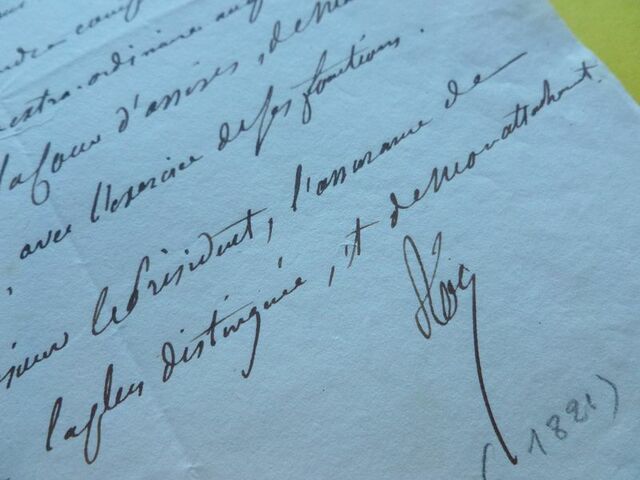 extra-ordinaire
la Cour d'assises, de
avec l'exercice de ses fonctions.
le Président, l'assurance de
la plus distinguée, et de mon attachement.
(1821)